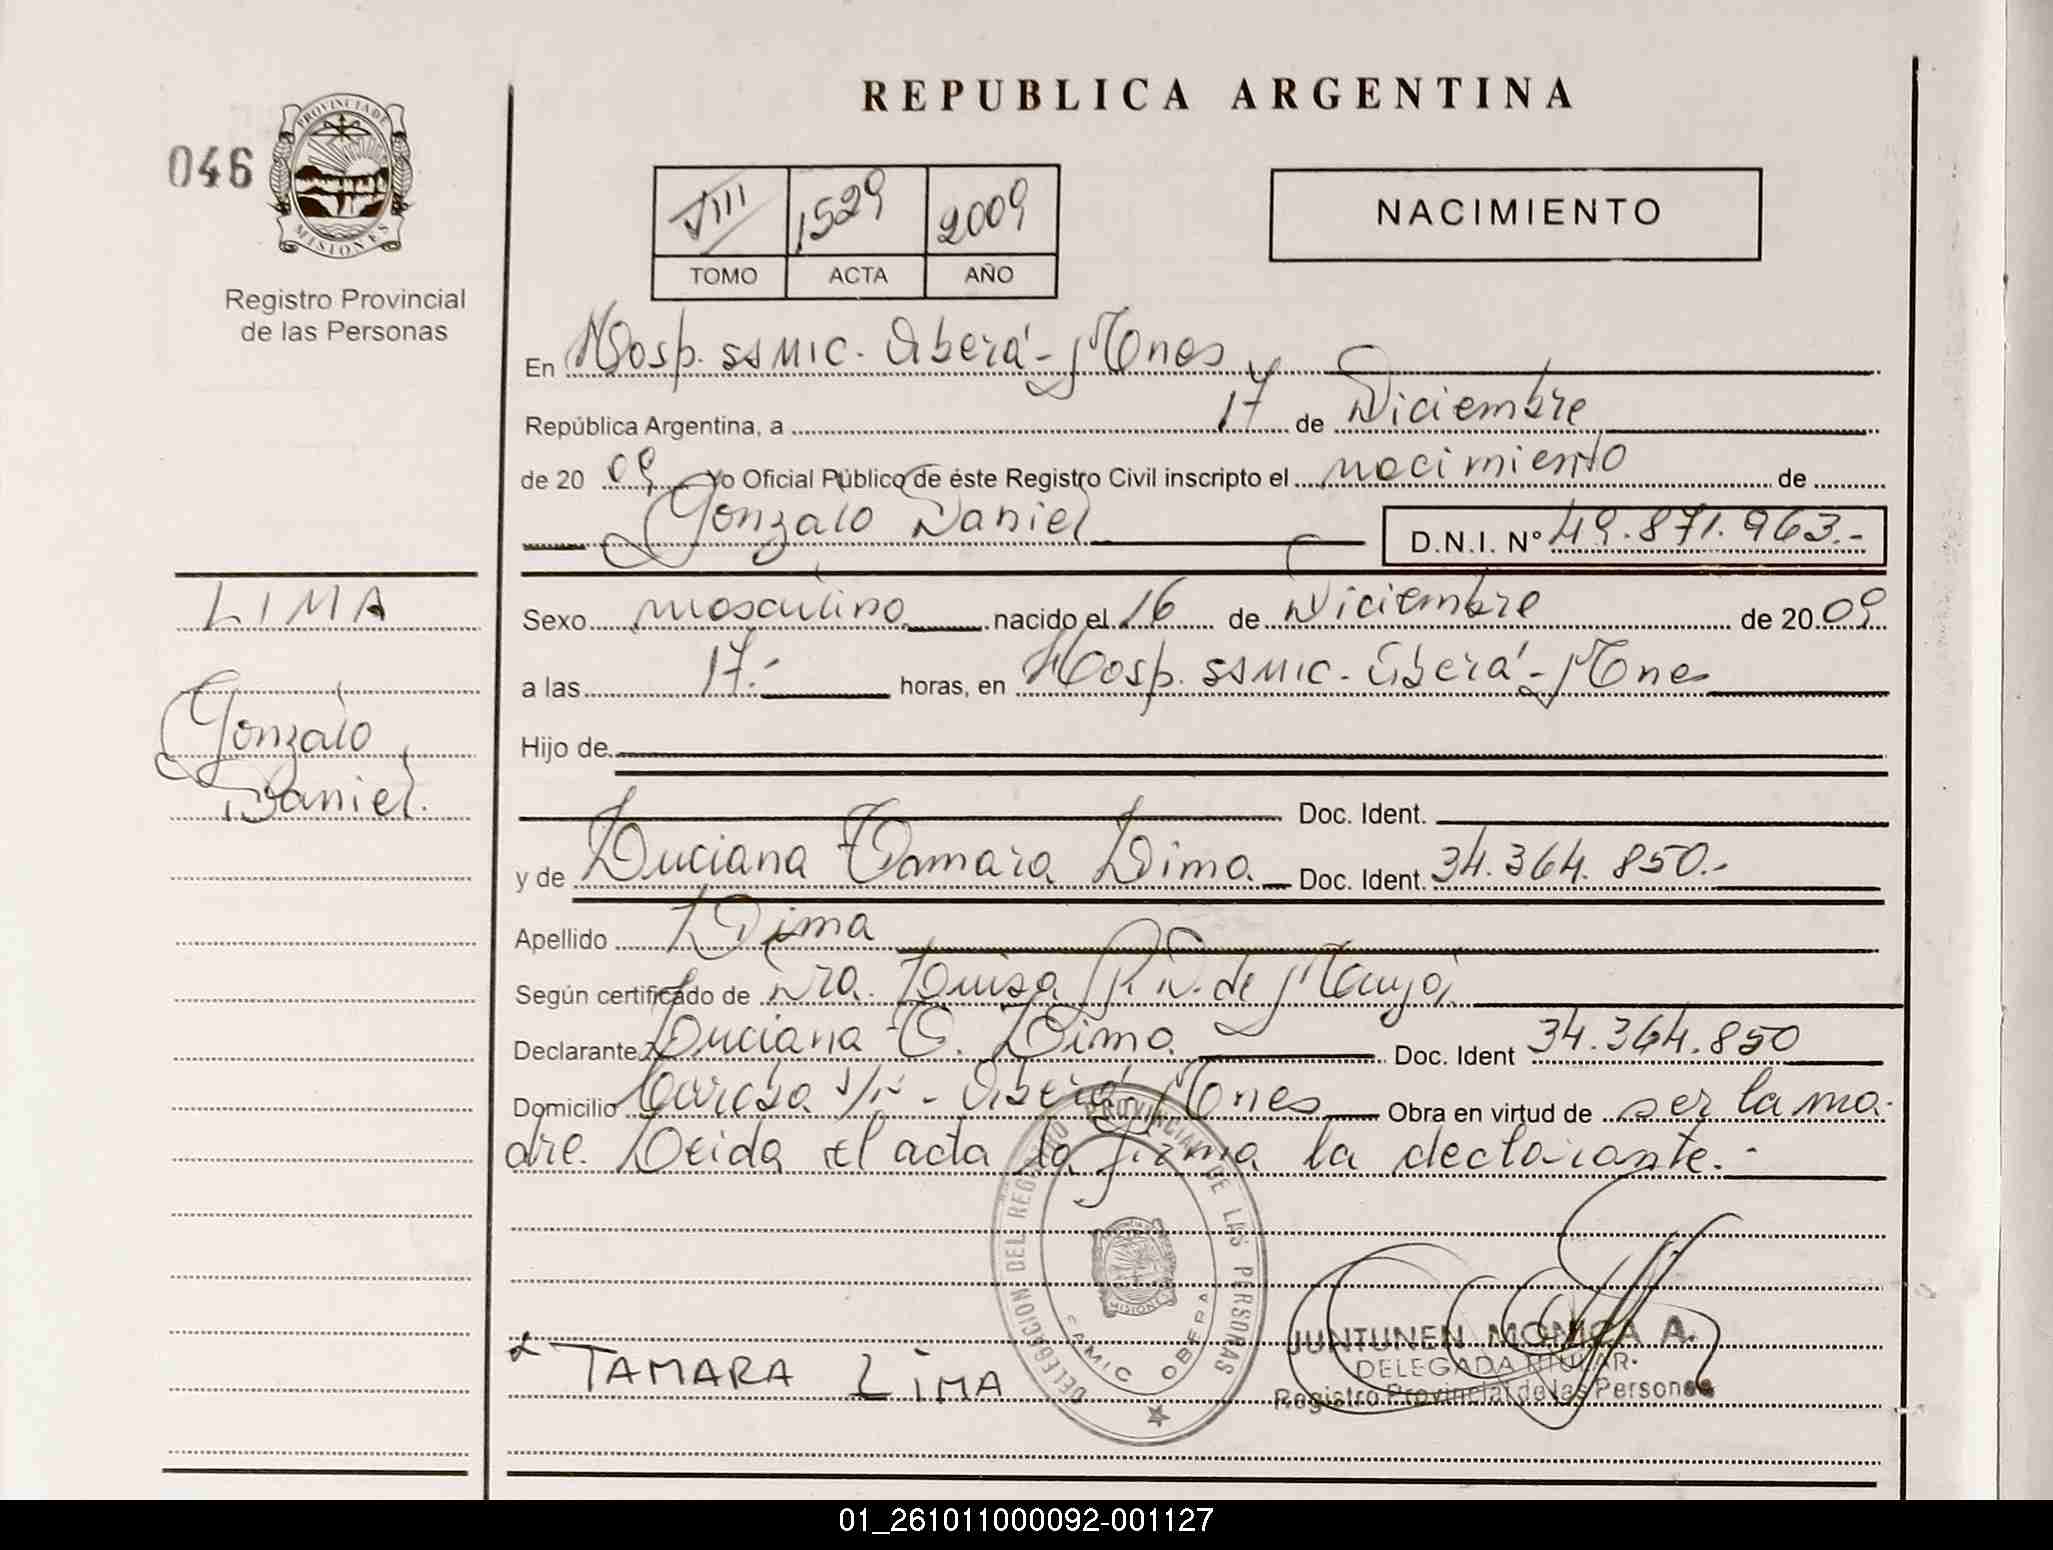 REPUBLICA ARGENTINA
046
PROVINCIA DE
MISIONES
Registro Provincial
de las Personas
VIII 1529 2009
TOMO ACTA AÑO
NACIMIENTO
En Hosp. SSMIC. Oberá - Mnes y
República Argentina, a 17 de Diciembre
de 20 09 Yo Oficial Público de éste Registro Civil inscripto el nacimiento de
Gonzalo Daniel
D.N.I. Nº 49.871.963.-
LIMA
Gonzalo
Daniel.
Sexo masculino nacido el 16 de Diciembre de 20 09
a las 17.- horas, en Hosp. SSMIC. Oberá - Mnes
Hijo de
Doc. Ident.
y de Luciana Tamara Lima Doc. Ident. 34.364.850.-
Apellido Lima
Según certificado de Dra. Luisa de
Declarante Luciana T. Lima Doc. Ident 34.364.850
Domicilio s/n - Oberá - Mnes Obra en virtud de ser la ma-
dre. Leida el acta la firma la declarante.-
DELEGACION DEL REGISTRO PROVINCIAL DE LAS PERSONAS
MISIONES
SAMIC OBERA
TAMARA LiMA
JUNTUNEN MONICA A.
DELEGADA TITULAR
Registro Provincial de las Personas
01_261011000092-001127